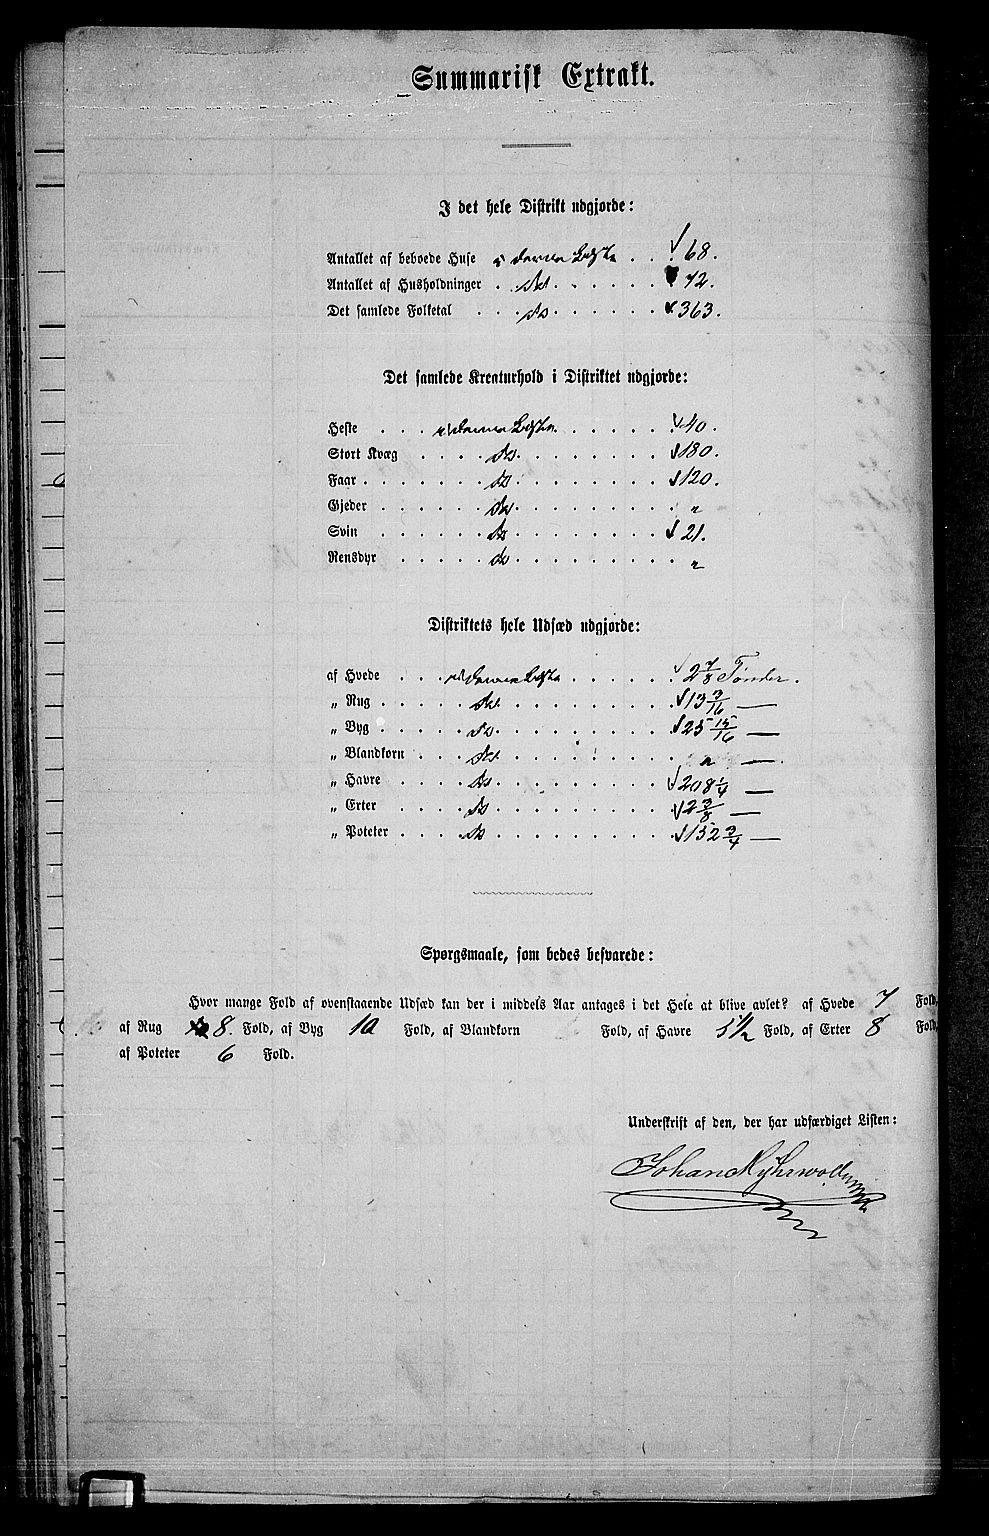 Summarisk Extrakt.
I det hele Distrikt udgjorde:
Antallet af beboede Huse i denne Liste . . 68.
Antallet af Husholdninger . do . . . . . . 72.
Det samlede Folketal . . . do . . . . . . 363.
Det samlede Kreaturhold i Distriktet udgjorde:
Heste . . . i denne Liste . . . . . . 40.
Stort Kvæg . . . . do . . . . . . . . 180.
Faar . . . . . . . do . . . . . . . . 120.
Gjeder . . . . . do . . . . . . . . "
Svin . . . . . do . . . . . . . . 21.
Rensdyr . . . . do . . . . . . . . "
Distriktets hele Udsæd udgjorde:
af Hvede . . . i denne Liste . . . . . 2 7/8 Tønder.
„ Rug . . . . . do . . . . . . . . 13 3/16 —
„ Byg . . . . . do . . . . . . . . 25 15/16 —
„ Blandkorn . . . do . . . . . . . . " —
„ Havre . . . . do . . . . . . . . 208 1/4 —
„ Erter . . . . do . . . . . . . . 2 3/8 —
„ Poteter . . . . do . . . . . . . . 152 3/4 —
Spørgsmaale, som bedes besvarede:
Hvor mange Fold af ovenstaaende Udsæd kan der i middels Aar antages i det Hele at blive avlet? af Hvede 7 Fold,
af Rug 8. Fold, af Byg 10 Fold, af Blandkorn Fold, af Havre 5 1/2 Fold, af Erter 8 Fold,
af Poteter 6 Fold.
Underskrift af den, der har udfærdiget Listen:
Johan